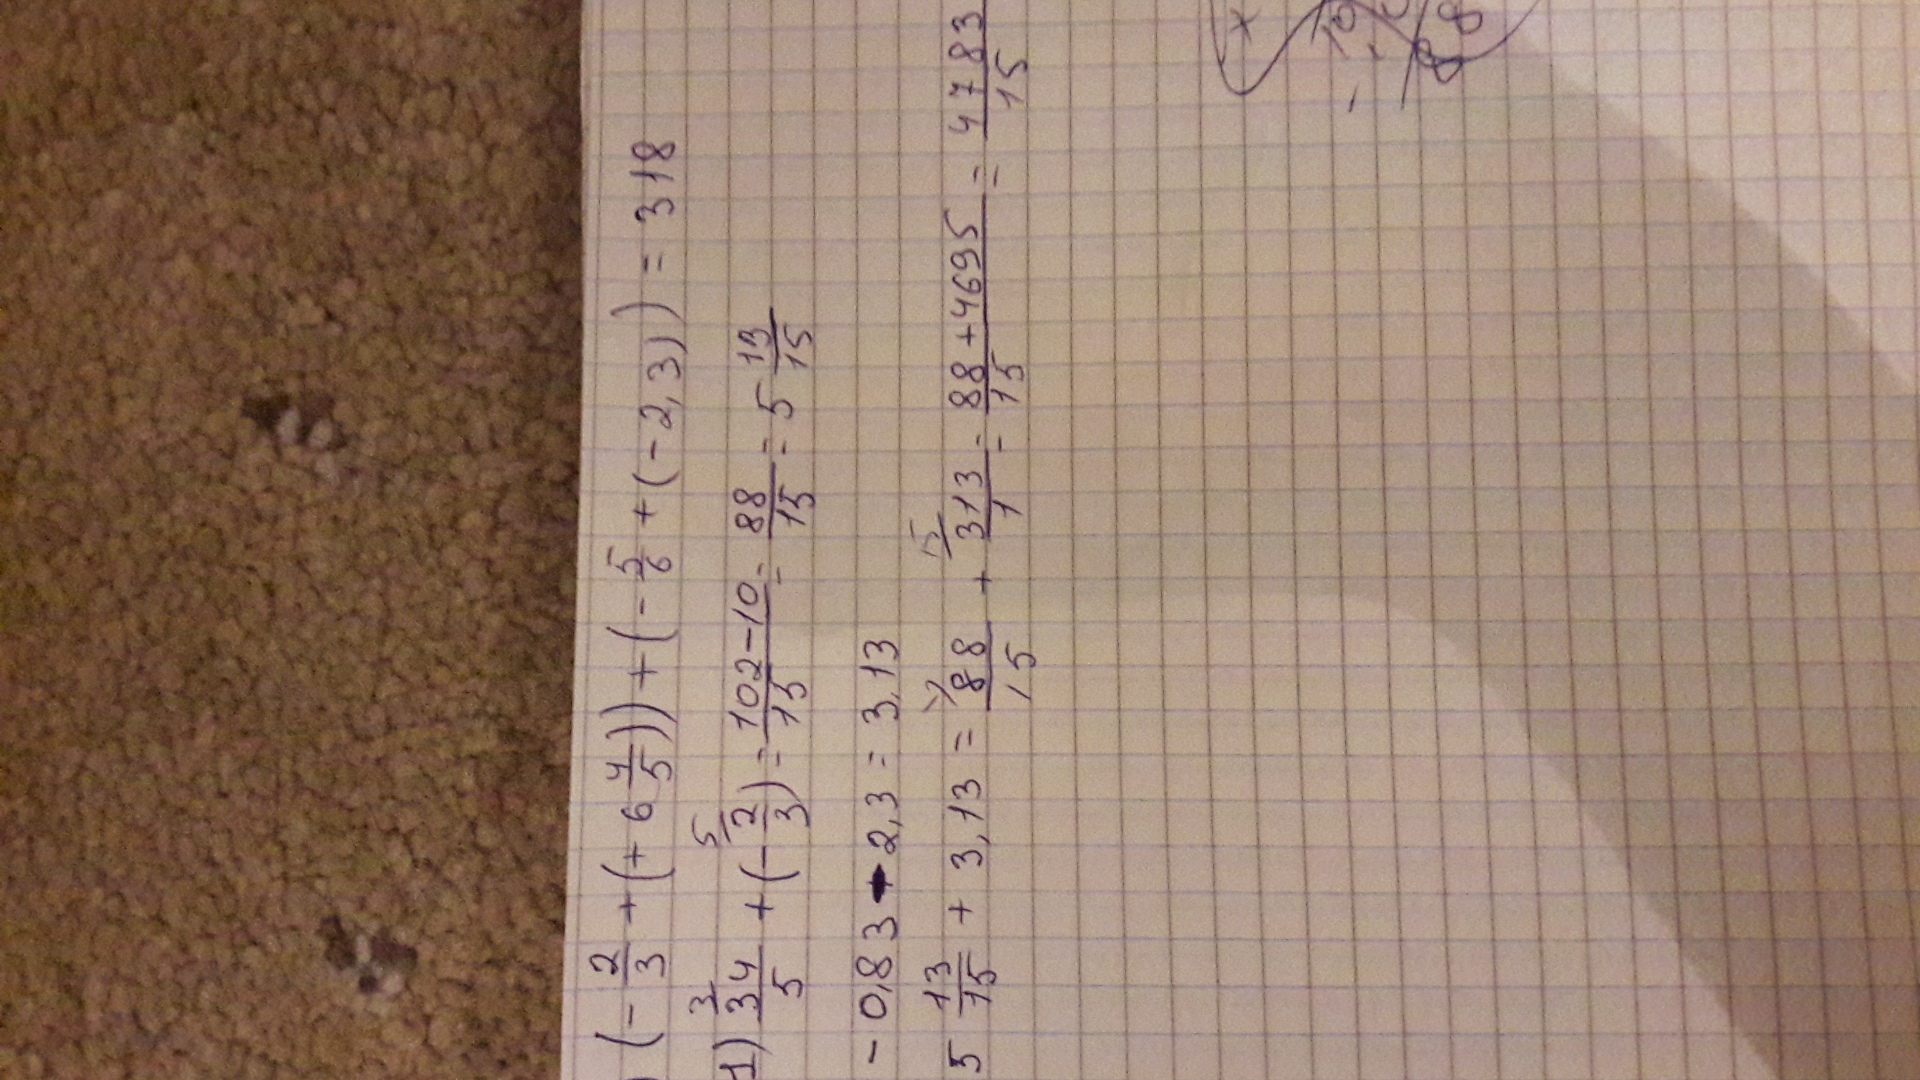 ) (- 2/3 + (+ 6 4/5))) + (- 5/6 + (-2,3)) = 318
1) 34/5 + (- 2/3) = 102-10/15 = 88/15 = 5 13/15
- 0,83 + 2,3 = 3,13
5 13/15 + 3,13 = 88/15 + 313/1 = 88+4695/15 = 4783/15